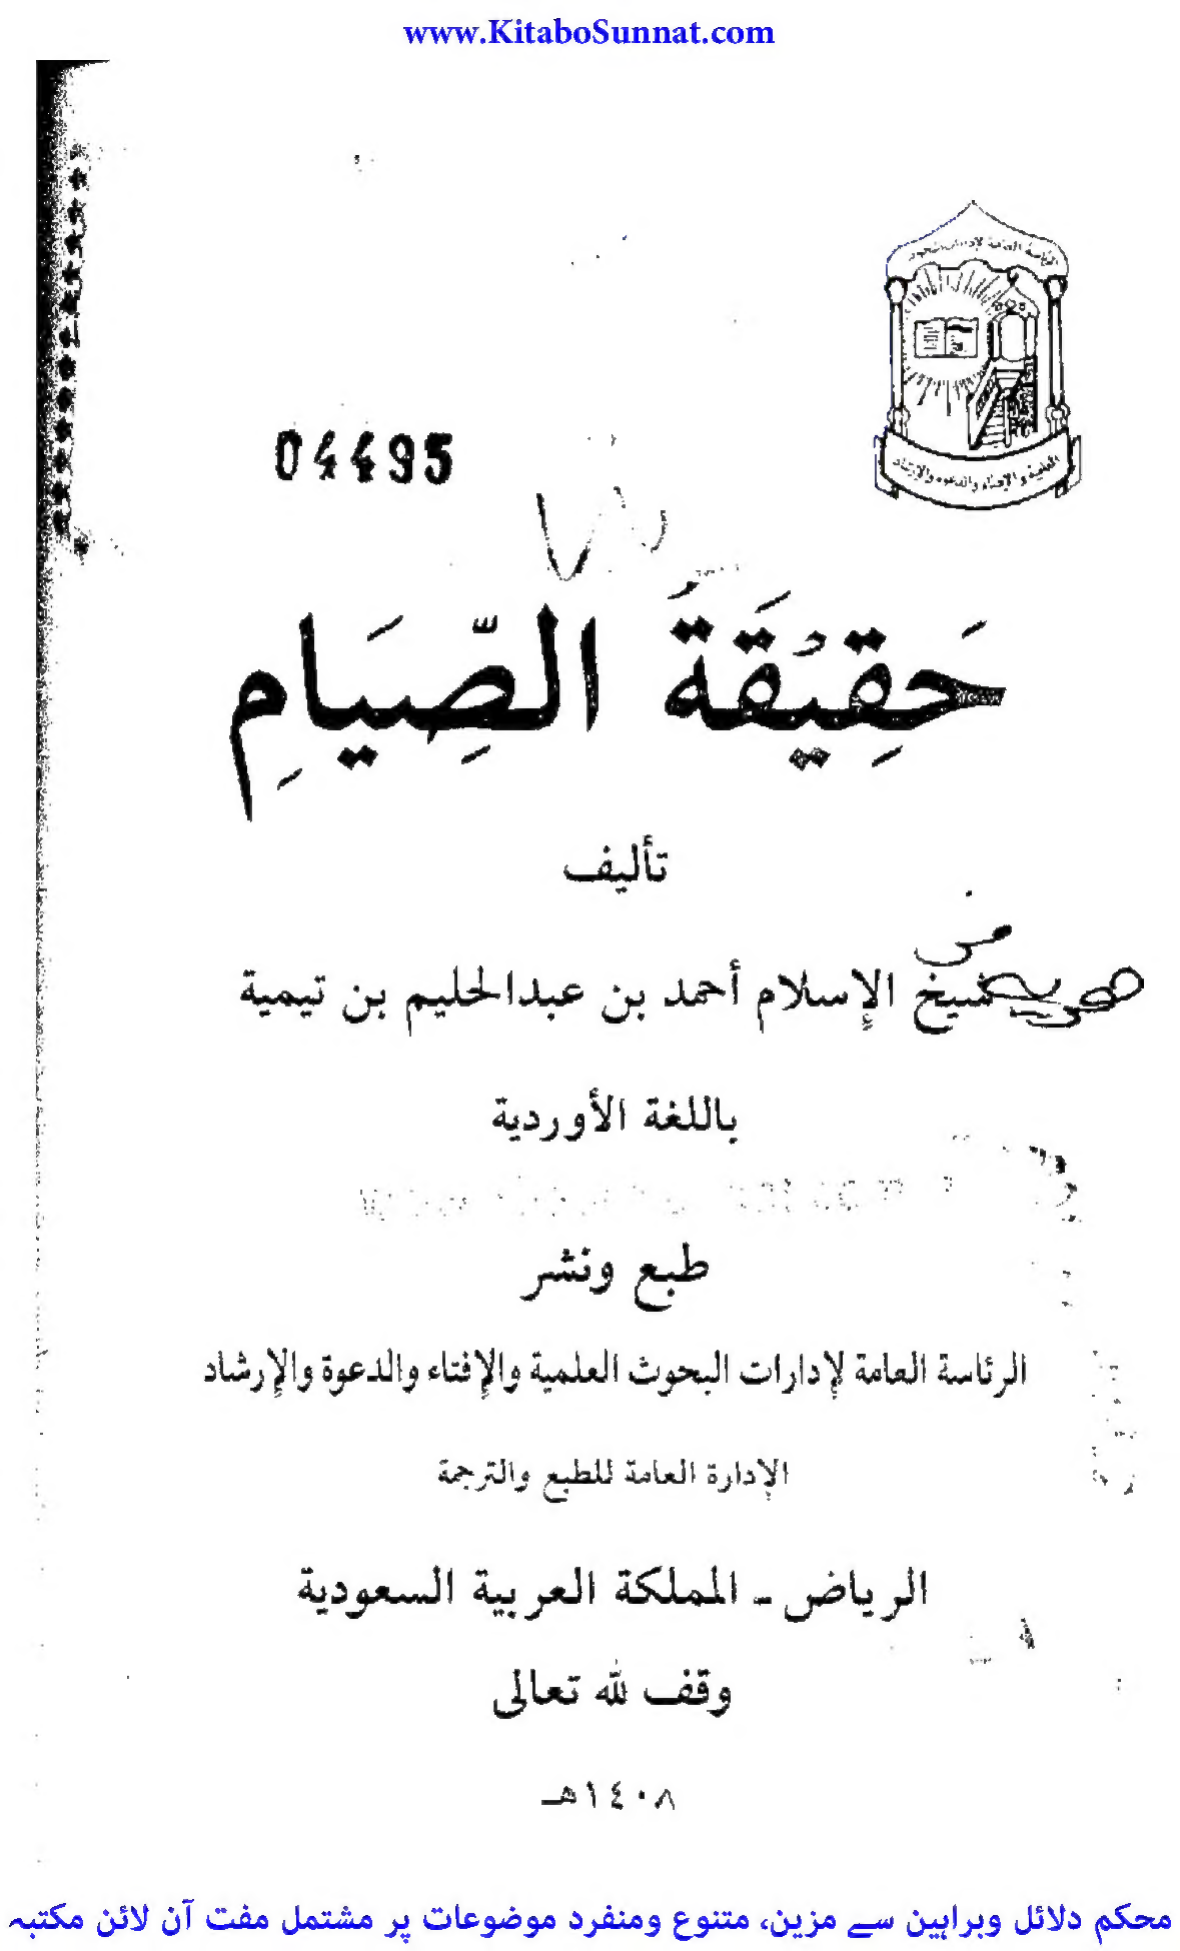 www.KitaboSunnat.com
04495
حَقِيْقَةُ الصِّيَامِ
تأليف
شيخ الإسلام أحمد بن عبدالحليم بن تيمية
باللغة الأوردية
طبع ونشر
الرئاسة العامة لإدارات البحوث العلمية والإفتاء والدعوة والإرشاد
الإدارة العامة للطبع والترجمة
الرياض ـ المملكة العربية السعودية
وقف لله تعالى
١٤٠٨هـ
محکم دلائل وبراہین سے مزین، متنوع ومنفرد موضوعات پر مشتمل مفت آن لائن مکتبہ